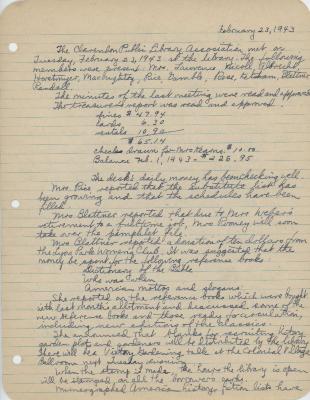 February 23, 1943
The Clarendon Public Library Association met on
Tuesday, February 23, 1943 at the library. The following
members were present: Mrs. Lawrence, Nicoll, Albrecht,
Mac Rice, Gamble, Rose, Ketcham, Blattner
Randall.
The minutes of the last meeting were read and approved.
The treasurer's report was read and approved.
fines $47.94
cards 6.30
rentals 10.90
$65.14
checks drawn for Mrs. $10.00
Balance Feb. 1, 1943 - $225.95
The desk's daily money has been checking well.
Mrs. Rice reported that the substitute list has
been growing and that the schedules have been
filled.
Mrs. Blattner reported that due to Mrs. Weber's
return to a full time job, Mrs. Rooney will soon
take over the pamphlet file.
Mrs. Blattner reported a donation of ten dollars from
the Lyon Park Woman's Club. It was suggested that the
money be spent for the following reference books:
Dictionary of the Bible
Who was When
American mottoes and slogans.
She reported on the reference books which were bought
with last month's allotment and discussed some of the
new reference books and those ready for circulation,
including new editions of the classics.
She announced that blanks for recruiting Victory
garden plots and gardeners will be distributed by the library.
There will be a Victory Gardening talk at the Colonial Village
Ballroom next Tuesday evening.
When the stamp is made, the hours the library is open
will be stamped on all the borrowers cards.
Mimeographed American history fiction lists have